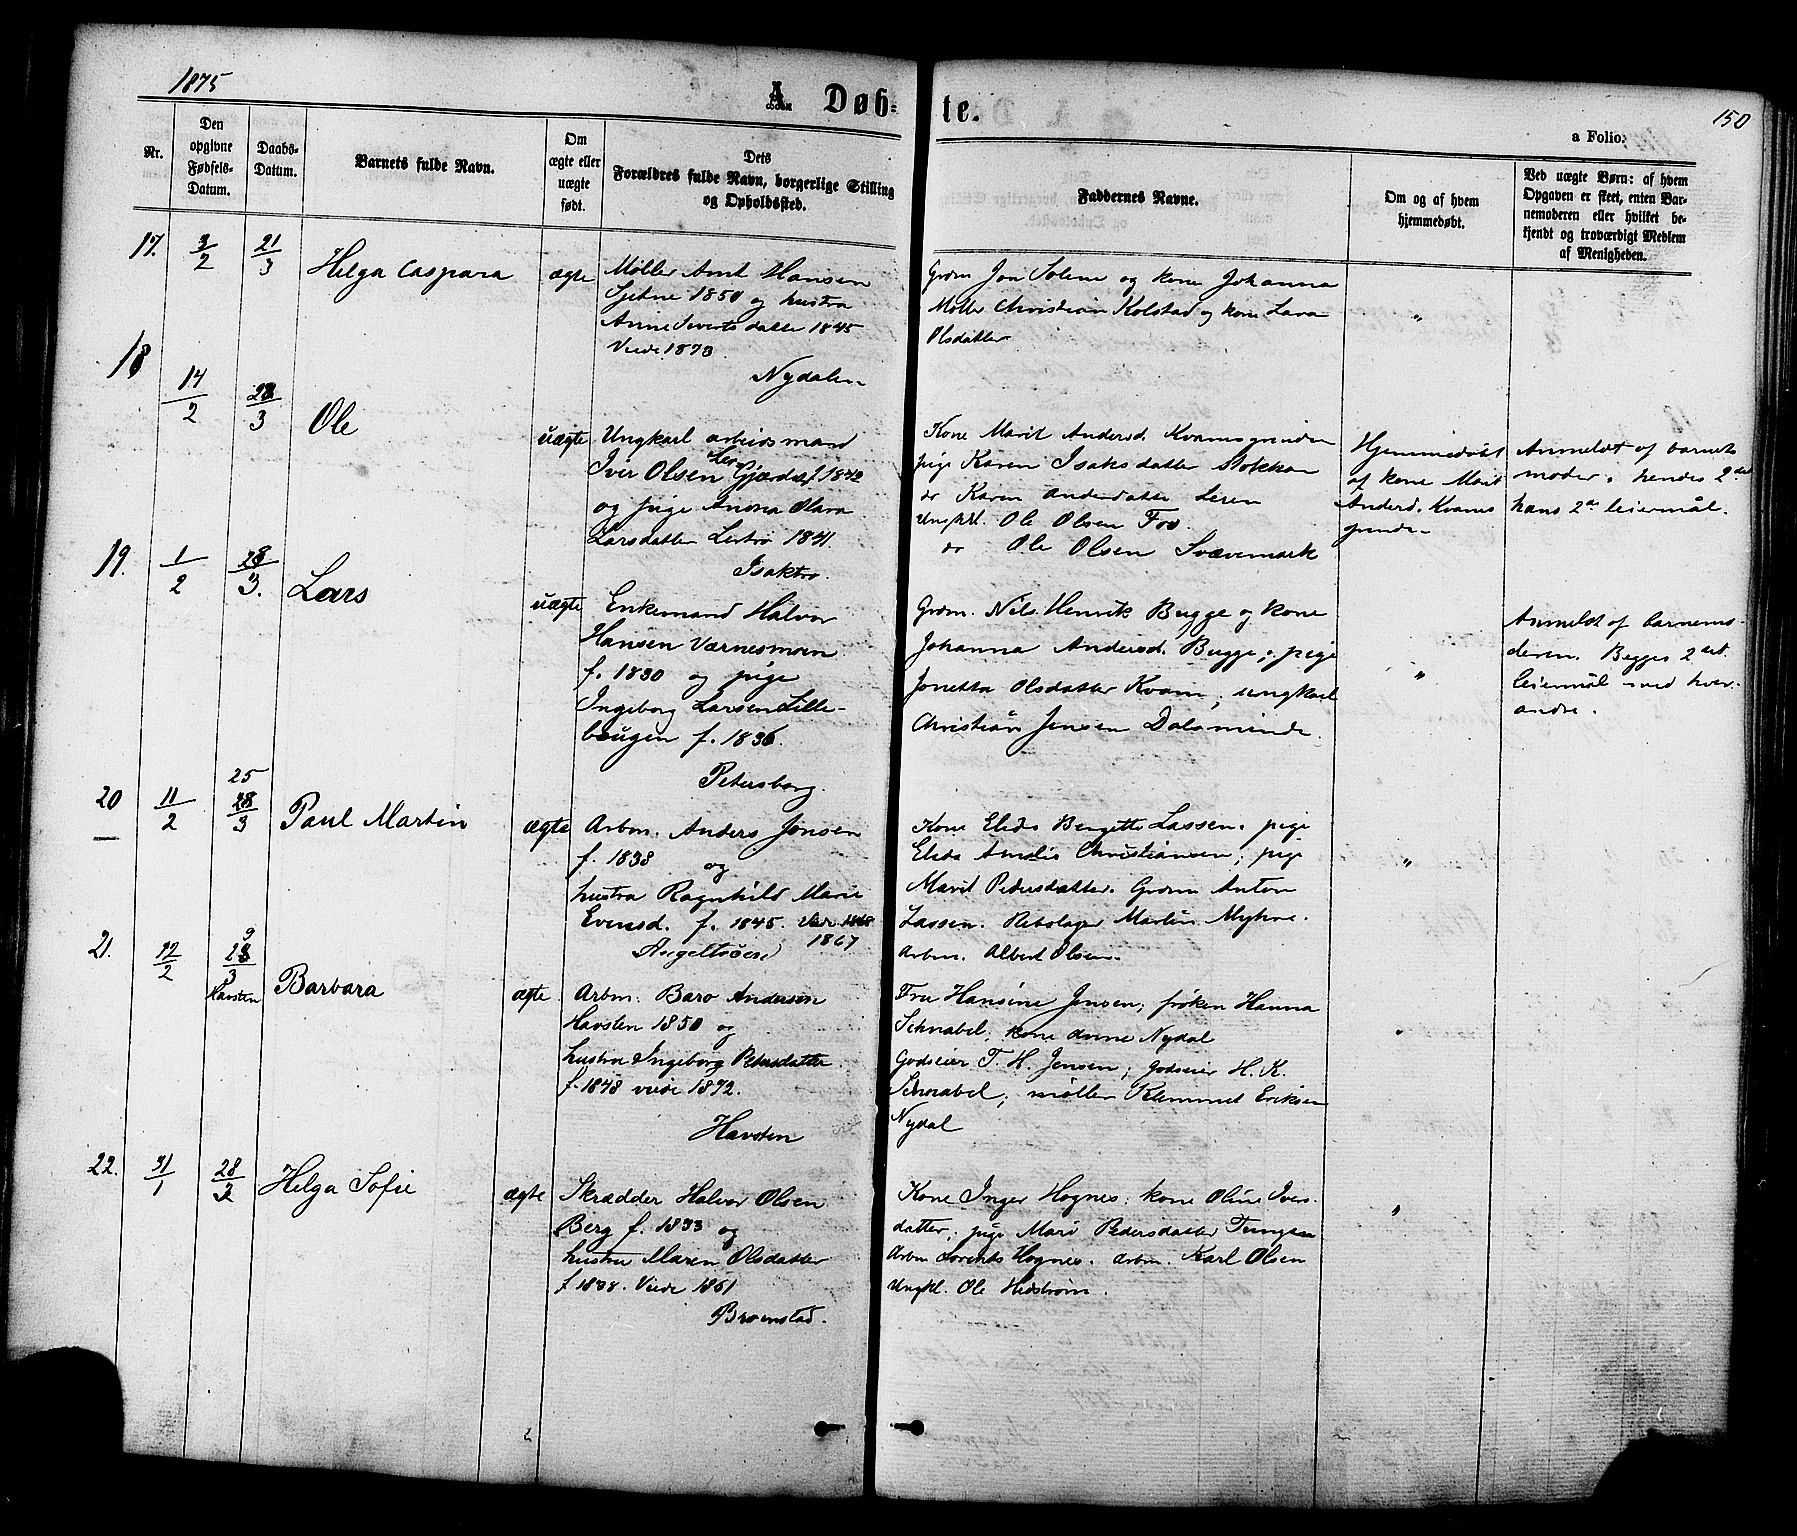 1875
A Døb-
te.
150
a Folio.
Nr.
Den opgivne Fødsels-Datum.
Daabs-Datum.
Barnets fulde Navn.
Om ægte eller uægte født.
Dets Forældres fulde Navn, borgerlige Stilling og Opholdssted.
Faddernes Navne.
Om og af hvem hjemmedøbt.
Ved uægte Børn: af hvem Opgaven er skeet, enten Barnemoderen eller hvilket bekjendt og troværdigt Medlem af Menigheden.
17. 3/2 21/3 Helga Caspara ægte
Møller Arnt Hansen
Sjetne 1850 og hustru
Anne Sivertsdatter 1845
Viede 1873
Nydalen
Grdm Jon Solem og kone Johanna
Møller Christian Kolstad og kone Lava
Olsdatter
"
18 14/2 28/3 Ole uægte
Ungkarl arbeidsmand
Iver Olsen Gjærdet 1842
og pige Andrea Olava
Larsdatter Lertrø 1841.
Isaktrø.
Kone Marit Andersd. Kvamsgrinden
pige Karen Isaksdatter Stokkan
do Karen Andersdatter Leren
Ungkl. Ole Olsen Fos.
do Ole Olsen Svævemark
Hjemmedøbt
af kone Marit
Andersd. Kvams
grinden
Anmeldt af barnets
moder. hendes 2det
hans 2det leiermål.
19. 1/2 28/3. Lars uægte
Enkemand Halvor
Hansen Værnesmoen
f. 1830 og pige
Ingeborg Larsen Lille-
haugen f. 1836.
Petersborg.
Grdm. Nils Henrik Bugge og kone
Johanna Andersd. Bugge; pige
Jonetta Olsdatter Kvam; ungkarl
Christian Jensen Dalsminde.
"
Anmeldt af barnemo-
deren. Begges 2det
leiermål med hver-
andre.
20 11/2 25 28/3 Paul Martin ægte
Arbm. Anders Jonsen
f. 1838 og
hustru Ragnhild Marie
Evensd. f. 1845. Viet 1868
1867
Angeltrøen
Kone Elida Bergitte Lassen. pige
Elida Amalia Christiansen; pige
Marit Pedersdatter. Grdm Anton
Lassen. Rebslager Martin Myhre.
Arbm. Albert Olsen.
"
21. 12/2 29/3 Havsten Barbara ægte
Arbm. Baro Andersen
Havsten 1850 og
hustru Ingeborg Petersdatter
f. 1848 viede 1872.
Havsten
Fru Hansine Jensen; frøken Hanna
Schnabel; kone Anne Nydal
Godseier T. H. Jensen; godseier H. K.
Schnabel; møller Klemmet Eriksen
Nydal
"
22. 31/1 28/3 Helga Sofie ægte
Skrædder Halvor Olsen
Berg f. 1833 og
hustru Maren Olsdatter
f 1838. Viede 1861
Bromstad.
Kone Inger Hognes; kone Oline Ivers-
datter; pige Mari Pedersdatter Tungen
Arbm Lorents Hognes. Arbm. Karl Olsen
Ungkl. Ole Hedstrøm.
"